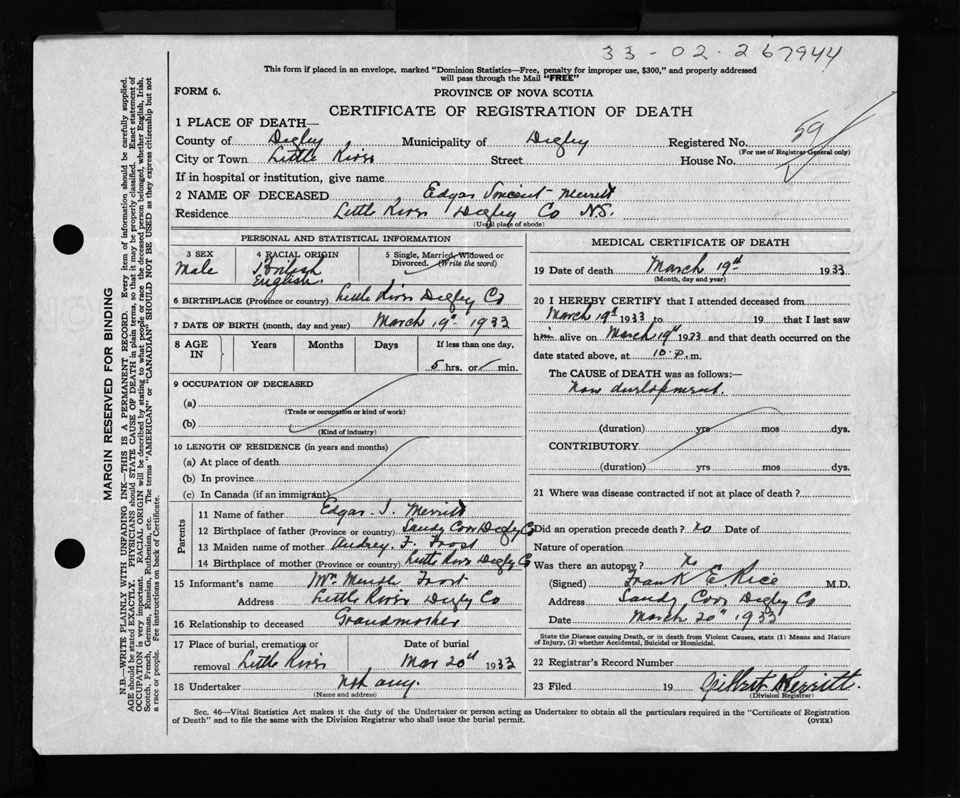 33-02-267944
This form if placed in an envelope, marked "Dominion Statistics—Free, penalty for improper use, $300," and properly addressed
will pass through the Mail "FREE"
FORM 6.
PROVINCE OF NOVA SCOTIA
CERTIFICATE OF REGISTRATION OF DEATH
1 PLACE OF DEATH—
County of Digby Municipality of Digby Registered No. 59
(For use of Registrar General only)
City or Town Little River Street House No.
If in hospital or institution, give name
2 NAME OF DECEASED Edgar Vincent Merritt
Residence Little River Digby Co N.S.
(Usual place of abode)
PERSONAL AND STATISTICAL INFORMATION
3 SEX 4 RACIAL ORIGIN 5 Single, Married, Widowed or
Divorced. (Write the word)
Male British
English.
6 BIRTHPLACE (Province or country) Little River Digby Co
7 DATE OF BIRTH (month, day and year) March 19th 1933
8 AGE IN Years Months Days If less than one day,
5 hrs. or min.
9 OCCUPATION OF DECEASED
(a)
(Trade or occupation or kind of work)
(b)
(Kind of industry)
10 LENGTH OF RESIDENCE (in years and months)
(a) At place of death
(b) In province
(c) In Canada (if an immigrant)
Parents
11 Name of father Edgar. J. Merritt
12 Birthplace of father (Province or country) Sandy Cove Digby Co
13 Maiden name of mother Audrey F. Frost
14 Birthplace of mother (Province or country) Little River Digby Co
15 Informant's name Mrs. Frost
Address Little River Digby Co
16 Relationship to deceased Grandmother
17 Place of burial, cremation or Date of burial
removal Little River Mar 20th 1933
18 Undertaker Not any.
(Name and address)
MEDICAL CERTIFICATE OF DEATH
19 Date of death March 19th 1933
(Month, day and year)
20 I HEREBY CERTIFY that I attended deceased from
March 19th 1933 to 19 that I last saw
him alive on March 19th 1933 and that death occurred on the
date stated above, at 10 P. m.
The CAUSE of DEATH was as follows:—
Non development.
(duration) yrs mos dys.
CONTRIBUTORY
(duration) yrs mos dys.
21 Where was disease contracted if not at place of death?
Did an operation precede death? No Date of
Nature of operation
Was there an autopsy? No
(Signed) Frank E. Rice M.D.
Address Sandy Cove Digby Co
Date March 20th 1933
State the Disease causing Death, or in death from Violent Causes, state (1) Means and Nature
of Injury, (2) whether Accidental, Suicidal or Homicidal.
22 Registrar's Record Number
23 Filed 19 Gilbert Merritt.
(Division Registrar)
Sec. 46—Vital Statistics Act makes it the duty of the Undertaker or person acting as Undertaker to obtain all the particulars required in the "Certificate of Registration
of Death" and to file the same with the Division Registrar who shall issue the burial permit.
(OVER)
MARGIN RESERVED FOR BINDING
N.B.—WRITE PLAINLY WITH UNFADING INK—THIS IS A PERMANENT RECORD. Every item of information should be carefully supplied.
AGE should be stated EXACTLY. PHYSICIANS should STATE CAUSE OF DEATH in plain terms, so that it may be properly classified. Exact statement of
OCCUPATION is very important. RACIAL ORIGIN will be described by stating to what people or race the deceased person belonged, whether English, Irish,
Scotch, French, German, Russian, Ruthenian, etc. The terms "AMERICAN" or "CANADIAN" SHOULD NOT BE USED as they express citizenship but not
a race or people. See instructions on back of Certificate.